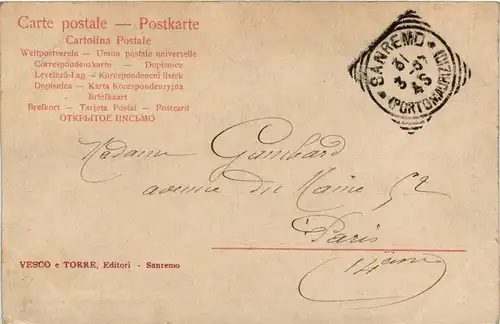 Carte postale — Postkarte
Cartolina Postale
Weltpostverein — Union postale universelle
Correspondenzkarte — Dopisnice
Levelező-Lap — Korespondencni listek
Dopisnica — Karta Korespondencyjna
Briefkaart
Brelkort — Tarjeta Postal — Postcard
ОТКРЫТОЕ ПИСЬМО
SANREMO
31
3 - 07
4 S
(PORTO MAURIZIO)
Madame Gambard
avenue du Maine 52
Paris
14ème
VESCO e TORRE, Editori - Sanremo